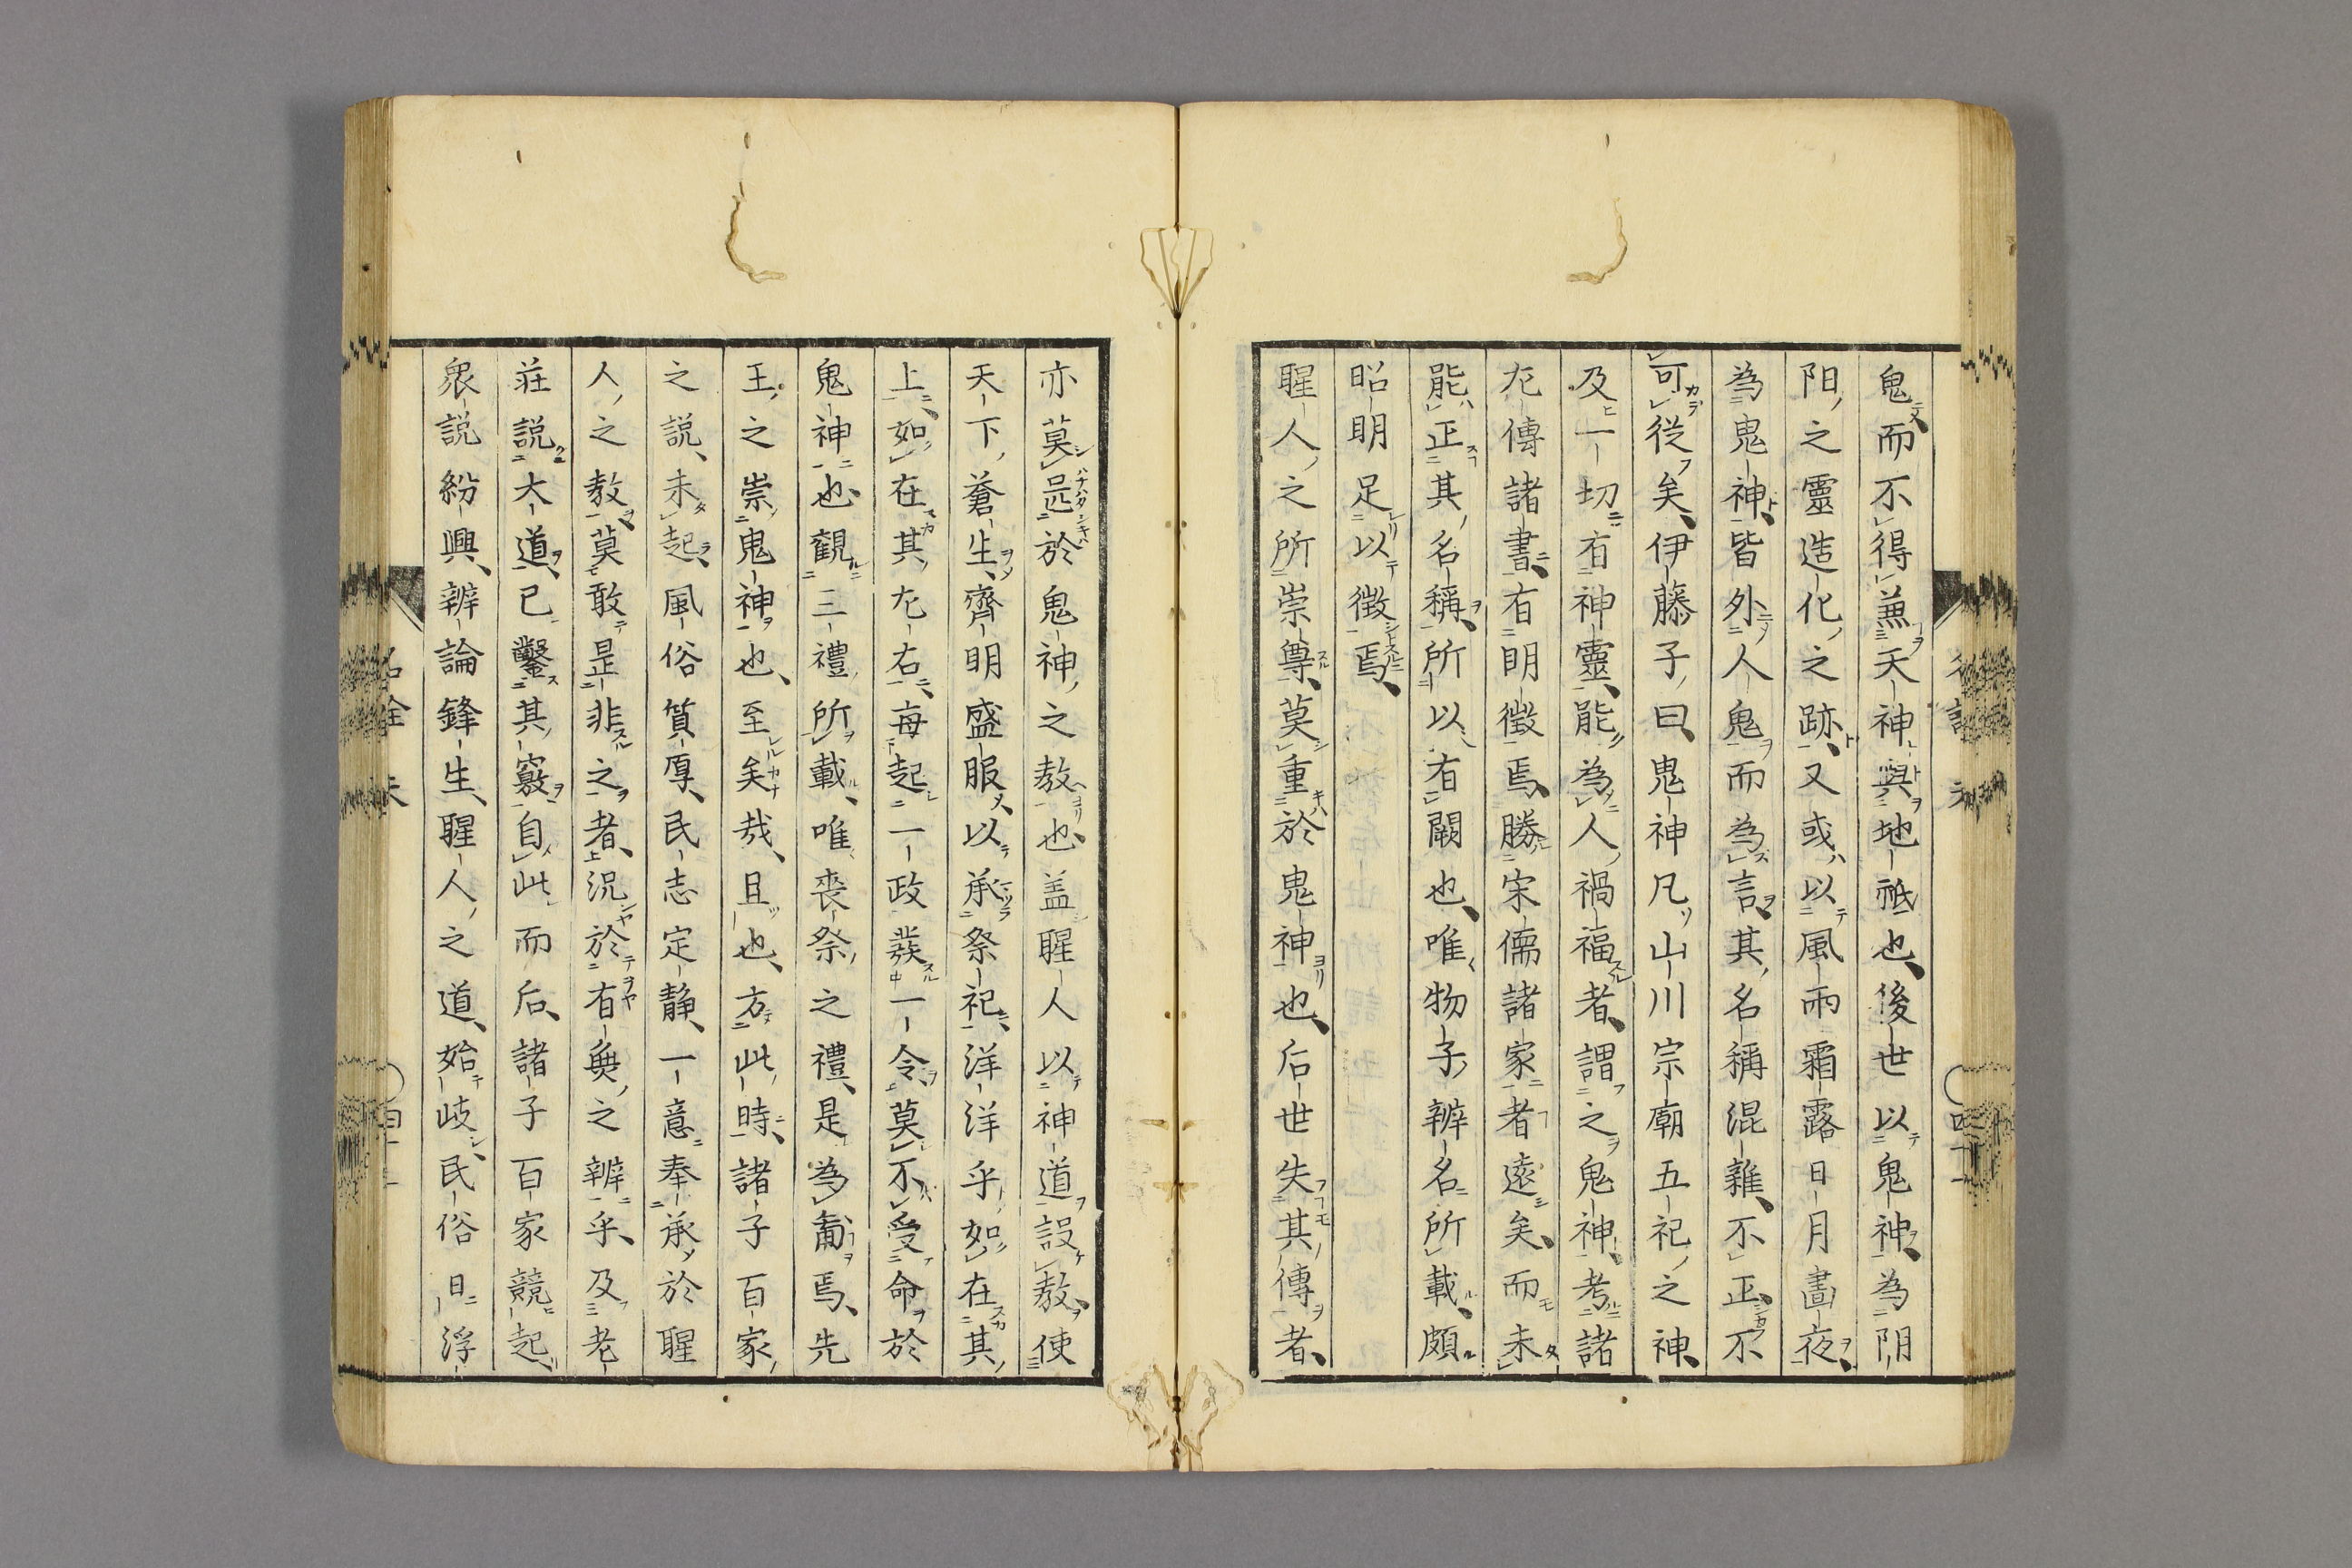 鬼而不得兼天神與地祗也後世以鬼神為阴
阳之靈造化之跡又或以風雨霜露日月晝夜
為鬼神皆外人鬼而為言其名稱混雜不正不
可從矣伊藤子曰鬼神凡山川宗廟五祀之神
及一切有神靈能為人禍福者謂之鬼神考諸
左傳諸書有明徵焉勝宋儒諸家者遠矣而未
能正其名稱所以有闕也唯物子辨名所載頗
昭明足以徵焉
聖人之所崇尊莫重於鬼神也后世失其傳者
亦莫是於鬼神之教也盖聖人以神道設教使
天下蒼生齊明盛服以承祭祀洋洋乎如在其
上如在其左右每起一政發一令莫不受命於
鬼神也觀三禮所載唯喪祭之禮是為備焉先
王之崇鬼神也至矣哉且也方此時諸子百家
之說未起風俗質厚民志定静一意奉承於聖
人之教莫敢是非之者況於有無之辨乎及老
莊說大道已鑿其竅自此而后諸子百家競起
衆說紛興辨論鋒生聖人之道始歧民俗日浮